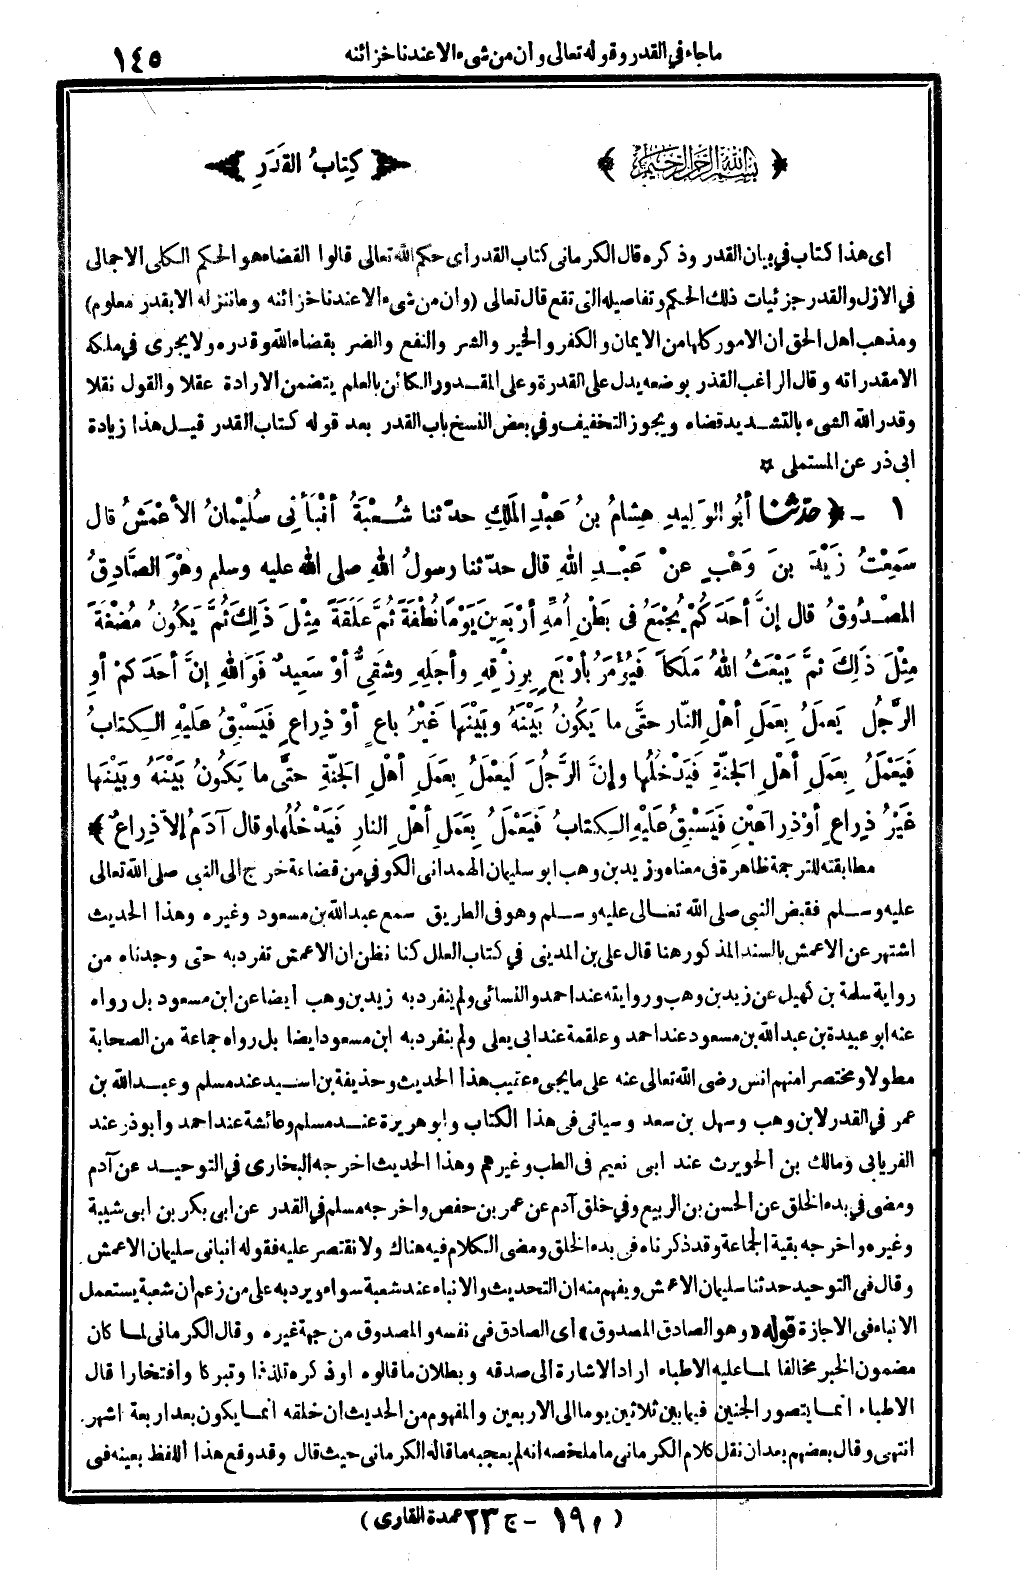 ما جاء في القدر وقوله تعالى وأن من شيء الا عندنا خزائنه
١٤٥
﴿ بسم الله الرحمن الرحيم ﴾
كِتابُ القَدَرِ
اى هذا كتاب في بيان القدر وذكره قال الكرمانى كتاب القدر أى حكم الله تعالى قالوا القضاء هو الحكم الكلى الاجمالى
في الازل والقدر جزئيات ذلك الحكم وتفاصيله التى تقع قال تعالى (وان من شىء الا عندنا خزائنه وما ننزله الا بقدر معلوم)
ومذهب اهل الحق ان الامور كلها من الايمان والكفر والخير والشر والنفع والضر بقضاء الله وقدره ولا يجرى في ملكه
الا مقدراته وقال الراغب القدر بوضعه يدل على القدرة وعلى المقدور الكائن بالعلم يتضمن الارادة عقلا والقول نقلا
وقدر الله الشىء بالتشديد قضاه ويجوز التخفيف وفي بعض النسخ باب القدر بعد قوله كتاب القدر قيل هذا زيادة
ابى ذر عن المستملى ۞
١ - ﴿ حَدَّثَنَا أبُو الوَلِيدِ هِشامُ بنُ عَبْدِ المَلِكِ حدّثنا شُعْبَةُ أنْبَأَنِى سُلَيْمانُ الأعْمَشُ قال
سَمِعْتُ زَيْدَ بنَ وَهْبٍ عنْ عَبْدِ اللهِ قال حدّثنا رسولُ اللهِ صلى الله عليه وسلم وهْوَ الصَّادِقُ
المَصْدُوقُ قال إنَّ أحَدَكُمْ يُجْمَعُ فى بَطْنِ أُمِّهِ أرْبَعِينَ يَوْمًا نُطْفَةً ثُمَّ عَلَقَةً مِثْلَ ذَلِكَ ثُمَّ يَكُونُ مُضْغَةً
مِثْلَ ذَلِكَ ثمَّ يَبْعَثُ اللهُ مَلَكاً فَيُؤْمَرُ بأرْبَعٍ بِرِزْقِهِ وأجَلِهِ وشَقِىٌّ أوْ سَعِيدٌ فَوَاللهِ إنَّ أحَدَكمْ أو
الرَّجُلَ يَعمَلُ بِعَمَلِ أهْلِ النَّار حتَّى ما يَكُونُ بَيْنَهُ وبَيْنَها غَيْرُ باعٍ أوْ ذِراعٍ فَيَسْبِقُ عَليْهِ الكِتابُ
فَيَعْمَلُ بِعَمَلِ أهْلِ الجنّةِ فَيَدْخلُها وإنَّ الرَّجُلَ لَيَعْمَلُ بِعَمَلِ أهْلِ الجَنّةِ حتَّى ما يَكُونُ بَيْنَهُ وبَيْنَها
غَيْرُ ذِراعٍ أوْ ذِراعَيْنِ فَيَسْبِقُ عَلَيْهِ الكِتابُ فَيَعْمَلُ بِعَمَلِ أهْلِ النارِ فَيَدْخُلُها وقال آدَمُ إلاّ ذِراعٌ ﴾
مطابقته للترجمة ظاهرة فى معناه وزيد بن وهب ابو سليمان الهمدانى الكوفي من قضاعة خرج الى النبى صلى الله تعالى
عليه وسلم فقبض النبى صلى الله تعالى عليه وسلم وهو فى الطريق سمع عبد الله بن مسعود وغيره وهذا الحديث
اشتهر عن الاعمش بالسند المذكور هنا قال على بن المدينى في كتاب العلل كنا نظن ان الاعمش تفرد به حتى وجدناه من
رواية سلمة بن كهيل عن زيد بن وهب وروايته عند احمد والنسائى ولم ينفرد به زيد بن وهب أيضا عن ابن مسعود بل رواه
عنه ابو عبيدة بن عبد الله بن مسعود عند احمد وعلقمة عند ابى يعلى ولم ينفرد به ابن مسعود ايضا بل رواه جماعة من الصحابة
مطولا ومختصرا منهم انس رضى الله تعالى عنه على ما يجىء عقيب هذا الحديث وحذيفة بن اسيد عند مسلم وعبد الله بن
عمر في القدر لابن وهب وسهل بن سعد وسياتى فى هذا الكتاب وابو هريرة عند مسلم وعائشة عند احمد وابو ذر عند
الفريابى ومالك بن الحويرث عند ابى نعيم فى الطب وغيرهم وهذا الحديث اخرجه البخارى في التوحيد عن آدم
ومضى في بدء الخلق عن الحسن بن الربيع وفي خلق آدم عن عمر بن حفص واخرجه مسلم في القدر عن ابى بكر بن ابى شيبة
وغيره واخرجه بقية الجماعة وقد ذكرناه فى بدء الخلق ومضى الكلام فيه هناك ولا نقتصر عليه فقوله انبانى سليمان الاعمش
وقال فى التوحيد حدثنا سليمان الاعمش ويفهم منه ان التحديث والانباء عند شعبة سواء ويرد به على من زعم ان شعبة يستعمل
الانباء فى الاجازة قوله «وهو الصادق المصدوق» أى الصادق فى نفسه والمصدوق من جهة غيره وقال الكرمانى لما كان
مضمون الخبر مخالفا لما عليه الاطباء اراد الاشارة الى صدقه وبطلان ما قالوه او ذكره تلذذا وتبركا وافتخارا قال
الاطباء انما يتصور الجنين فيما بين ثلاثين يوما الى الاربعين والمفهوم من الحديث ان خلقه انما يكون بعد اربعة اشهر
انتهى وقال بعضهم بعد ان نقل كلام الكرمانى ما ملخصه انه لم يعجبه ما قاله الكرمانى حيث قال وقد وقع هذا اللفظ بعينه فى
( م ١٩ - ج ٢٣ عمدة القارى )